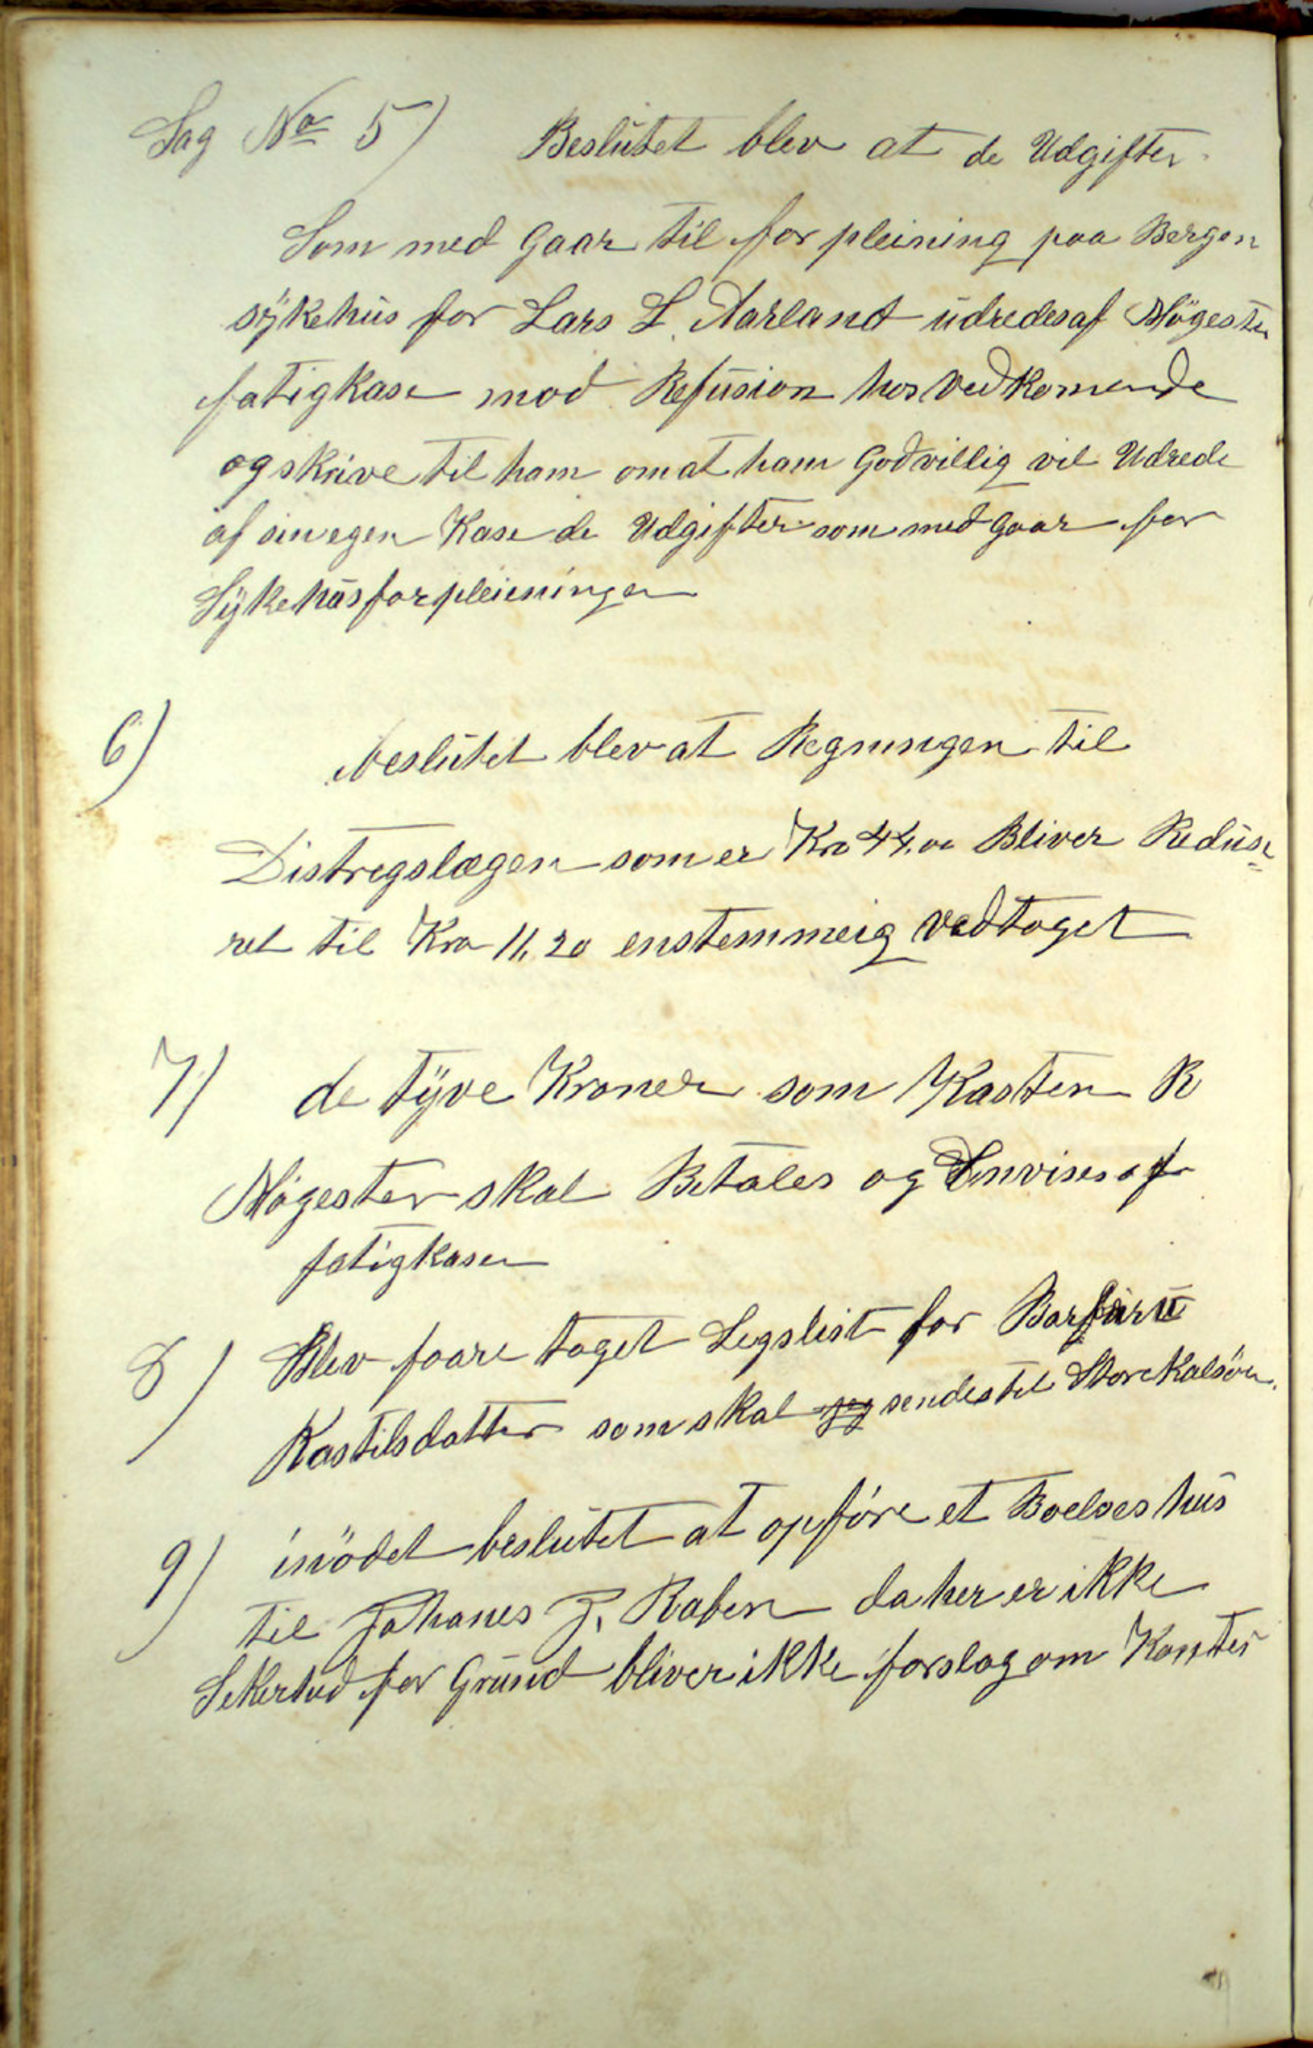 Sag No 5) Beslutet blev at de Udgifter
Som med Gaar til for pleining paa Bergen
sykehus for Lars L. Aarland udredes af Mögster
fatigkase mod Refusion hos vedkomende
og skrive til ham om at ham Godvillig vil Udrede
af sin egen Kase de Udgifter som med gaar for
Sykehusforpleiningen
6) beslutet blev at Regningen til
Distregslægen som er Kro 44,00 Bliver Reduse
ret til Kro 11,20 enstemmeig vedtaget
7) de tyve Kroner som Kasten R
Mögester skal Betales og Envises af
fatigkasen
8) Blev foare taget Legslist for Barbaru
Rastilsdatter som skal sendes til Store Kalsöen.
9) i mödet beslutet at opföre et Boelses hus
til Johanes J. Raben da her er ikke
Sikerhed for Grund bliver ikke forslag om Konter